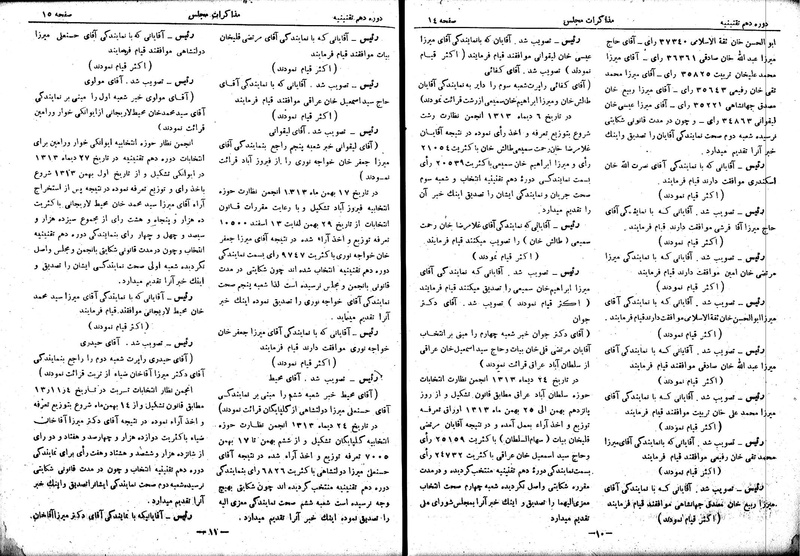 دوره دهم تقنینیه
مذاکرات مجلس
صفحه ۱۴
ابوالحسن خان ثقة الاسلامی ۳۷۳۴۰ رای - آقای حاج
میرزا عبد الله خان صادقی ۳۶۳۶۱ رای - آقای میرزا
محمد علیخان تربیت ۳۵۸۲۵ رای - آقای میرزا محمد
تقی خان رفیعی ۳۵۶۴۳ رای - آقای میرزا ربیع خان
مصدق جهانشاهی ۳۵۲۲۱ رای - آقای میرزا عیسی خان
لیقوانی ۳۴۸۶۳ رای - و چون در مدت قانونی شکایتی
نرسیده شعبه دوم صحت نمایندگی آقایان را تصدیق و اینك
خبر آنرا تقدیم میدارد.
رئیس - آقایانی که با نمایندگی آقای نصرت الله خان
اسکندری موافقت دارند قیام فرمایند.
(اکثر قیام نمودند)
رئیس - تصویب شد. آقایانی که با نمایندگی آقای
حاج میرزا آقا فرشی موافقت دارند قیام فرمایند.
(اکثر قیام نمودند)
رئیس - تصویب شد. آقایانی که با نمایندگی آقای
مرتضی خان امین موافقت دارند قیام فرمایند.
(اکثر قیام نمودند)
رئیس - تصویب شد. آقایانی که با نمایندگی آقای
میرزا ابوالحسن خان ثقة الاسلامی موافقت دارند قیام فرمایند.
(اکثر قیام نمودند)
رئیس - تصویب شد. آقایانی که با نمایندگی آقای
میرزا عبد الله خان صادقی موافقت دارند قیام فرمایند
(اکثر قیام نمودند)
رئیس - تصویب شد. آقایانی که با نمایندگی آقای
میرزا محمد علی خان تربیت موافقند قیام فرمایند
(اکثر قیام نمودند)
رئیس - تصویب شد. آقایانی که با نمایندگی آقای میرزا
محمد تقی خان رفیعی موافقند قیام فرمایند
(اکثر قیام نمودند)
رئیس - تصویب شد. آقایانی که با نمایندگی آقای
میرزا ربیع خان مصدق جهانشاهی موافقند قیام فرمایند
(اکثر قیام نمودند)
رئیس - تصویب شد. آقایان که با نمایندگی آقای میرزا
عیسی خان لیقوانی موافقند قیام فرمایند (اکثر قیام
نمودند) تصویب شد. آقای کفائی
(آقای کفائی راپرت شعبه سوم را دایر به نمایندگی آقایان
طالش خان و میرزا ابراهیم خان سمیعی از رشت قرائت نمودند)
در تاریخ ۶ دیماه ۱۳۱۳ انجمن نظارت رشت
شروع بتوزیع تعرفه و اخذ رأی نموده در نتیجه آقایان
غلامرضا خان رحمت سمیعی طالش خان با کثریت ۲۱۰۵۴
رأی و میرزا ابراهیم خان سمیعی با کثریت ۲۰۵۳۹ رأی
بسمت نمایندگی دوره دهم تقنینیه انتخاب و شعبه سوم
صحت جریان و نمایندگی ایشان را تصدیق اینك خبر آن
را تقدیم میدارد.
رئیس - آقایانی که نمایندگی آقای غلامرضا خان رحمت
سمیعی (طالش خان) را تصویب میکنند قیام فرمایند.
(اکثر قیام نمودند)
رئیس - تصویب شد. آقایانی که نمایندگی آقای
میرزا ابراهیم خان سمیعی را تصدیق میکنند قیام فرمایند
(اکثر قیام نمودند) تصویب شد. آقای دکتر
جوان
(آقای دکتر جوان خبر شعبه چهارم را مبنی بر انتخاب
آقایان مرتضی قلی خان بیات و حاج سید اسمعیل خان عراقی
از سلطان آباد عراق قرائت نمودند)
در تاریخ ۲۴ دیماه ۱۳۱۳ انجمن نظارت انتخابات
حوزه سلطان آباد عراق مطابق قانون تشکیل و از روز
پانزدهم بهمن الی ۲۵ بهمن ماه ۱۳۱۳ اوراق تعرفه
توزیع و اخذ آراء بعمل آمده و در نتیجه آقایان مرتضی
قلیخان بیات (سهام السلطان) با کثریت ۲۵۱۵۹ رأی
و حاج سید اسمعیل خان عراقی با کثریت ۲۴۷۳۲ رأی
بسمت نمایندگی دوره دهم تقنینیه منتخب گردیده و در مدت
مقرره شکایتی واصل نگردیده شعبه چهارم صحت انتخاب
معزی الیهما را تصدیق و اینك خبر آنرا بمجلس شورای ملی
تقدیم میدارد
-۱۰-
مذاکرات مجلس
دوره دهم تقنینیه
صفحه ۱۵
رئیس - آقایانی که با نمایندگی آقای مرتضی قلیخان
بیات موافقند قیام فرمایند
(اکثر قیام نمودند)
رئیس - تصویب شد. آقایانی که با نمایندگی آقای
حاج سید اسمعیل خان عراقی موافقند قیام فرمایند
(اکثر قیام نمودند)
رئیس - تصویب شد. آقای لیقوانی
(آقای لیقوانی خبر شعبه پنجم راجع بنمایندگی آقای
میرزا جعفر خان خواجه نوری را از فیروز آباد قرائت
نمودند)
در تاریخ ۱۷ بهمن ماه ۱۳۱۳ انجمن نظارت حوزه
انتخابیه فیروز آباد تشکیل و با رعایت مقررات قانون
انتخابات از تاریخ ۲۹ بهمن لغایت ۱۳ اسفند ۱۰۵۰۰
تعرفه توزیع و اخذ آراء شده در نتیجه آقای میرزا جعفر
خان خواجه نوری با کثریت ۹۷۴۷ رأی بسمت نمایندگی
دوره دهم تقنینیه انتخاب شده اند چون شکایتی در مدت
قانونی بانجمن و مجلس نرسیده است لذا شعبه پنجم صحت
نمایندگی آقای خواجه نوری را تصدیق نموده اینك خبر
آنرا تقدیم مینماید.
رئیس - آقایانی که با نمایندگی آقای میرزا جعفر خان
خواجه نوری موافقند قیام فرمایند
(اکثر قیام نمودند)
رئیس - تصویب شد. آقای محیط
(آقای محیط خبر شعبه ششم را مبنی بر نمایندگی
آقای حسنعلی میرزا دولتشاهی از گلپایگان قرائت نمودند)
در تاریخ ۲۴ دیماه ۱۳۱۳ انجمن نظارت حوزه
انتخابیه گلپایگان تشکیل و از ششم بهمن تا ۱۷ بهمن
۷۰۰۵ تعرفه توزیع و اخذ آراء شده در نتیجه آقای
حسنعلی میرزا دولتشاهی با کثریت ۶۸۲۶ رای بنمایندگی
دوره دهم تقنینیه منتخب گردیده اند چون شکایتی بهیچ
وجه نرسیده است شعبه ششم نمایندگی معزی الیه
را تصدیق نموده اینك خبر آنرا تقدیم میدارد.
رئیس - آقایانی که با نمایندگی آقای حسنعلی میرزا
دولتشاهی موافقند قیام فرمایند
(اکثر قیام نمودند)
رئیس - تصویب شد. آقای مولوی
(آقای مولوی خبر شعبه اول را مبنی بر نمایندگی
آقای سید محمد خان محیط لاریجانی از ایوانکی خوار ورامین
قرائت نمودند)
انجمن نظار حوزه انتخابیه ایوانکی خوار ورامین برای
انتخابات دوره دهم تقنینیه در تاریخ ۲۷ دیماه ۱۳۱۳
در ایوانکی تشکیل و از تاریخ اول بهمن ۱۳۱۳ شروع
باخذ رای و توزیع تعرفه نموده در نتیجه پس از استخراج
آراء آقای میرزا سید محمد خان محیط لاریجانی با کثریت
ده هزار و پنجاه و هشت رای از مجموع سیزده هزار و
سیصد و چهل و چهار رای بنمایندگی دوره دهم تقنینیه
انتخاب و چون در مدت قانونی شکایتی بانجمن و مجلس واصل
نگردیده شعبه اولی صحت نمایندگی ایشان را تصدیق و
اینك خبر آنرا تقدیم میدارد.
رئیس - آقایانی که با نمایندگی آقای میرزا سید محمد
خان محیط لاریجانی موافقند قیام فرمایند
(اکثر قیام نمودند)
رئیس - تصویب شد. آقای حیدری
(آقای حیدری راپرت شعبه دوم را راجع بنمایندگی
آقای دکتر میرزا آقاخان ضیاء از تربت قرائت نمودند)
انجمن نظار انتخابات تربت در تاریخ ۴ر۱۱ر۱۳
مطابق قانون تشکیل و از ۱۴ بهمن ماه شروع بتوزیع تعرفه
و اخذ آراء نموده در نتیجه آقای دکتر میرزا آقا خان
ضیاء با کثریت دوازده هزار و چهارصد و هفتاد و دو رای
از شانزده هزار و ششصد و هشتاد و هفت رأی برای نمایندگی
دوره دهم تقنینیه انتخاب و چون در مدت قانونی شکایتی
نرسیده شعبه دوم صحت نمایندگی ایشان را تصدیق و اینك خبر
آنرا تقدیم میدارد.
رئیس - آقایانیکه با نمایندگی آقای دکتر میرزا آقاخان
-۱۱-